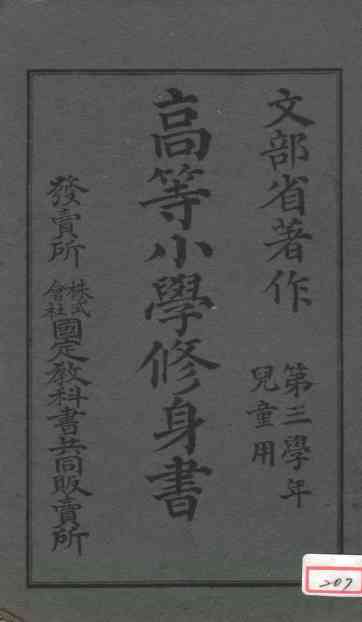 文部省著作
第三學年
兒童用
高等小學修身書
發賣所
株式
會社
國定教科書共同販賣所
207